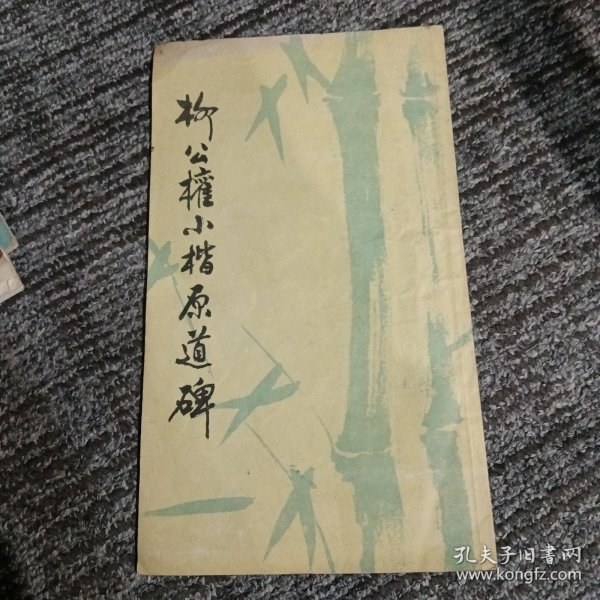 柳公權小楷原道碑
孔夫子旧书网
www.kongfz.com